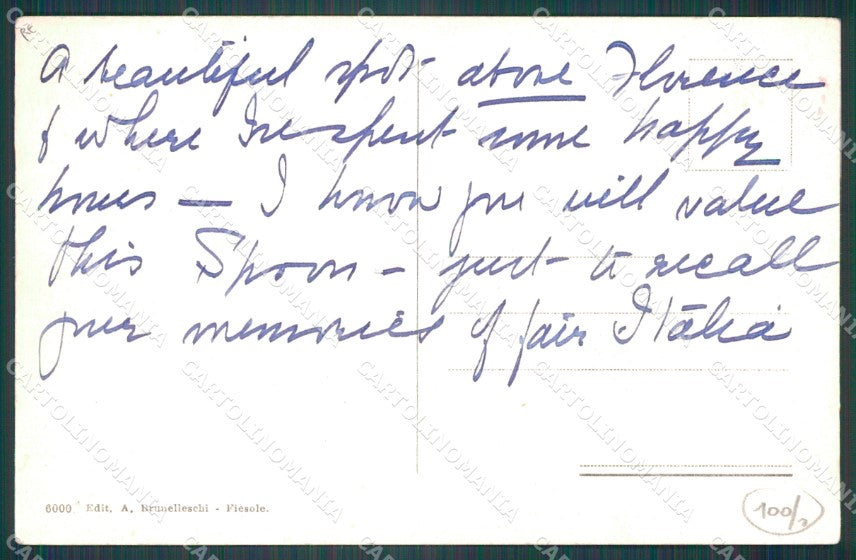 A beautiful spot above Florence
& where we spent some happy
hours — I know you will value
this Spoon — just to recall
your memories of fair Italia
6000 Edit. A. Brunelleschi - Fiesole.
100/2
CARTOLINOMANIA